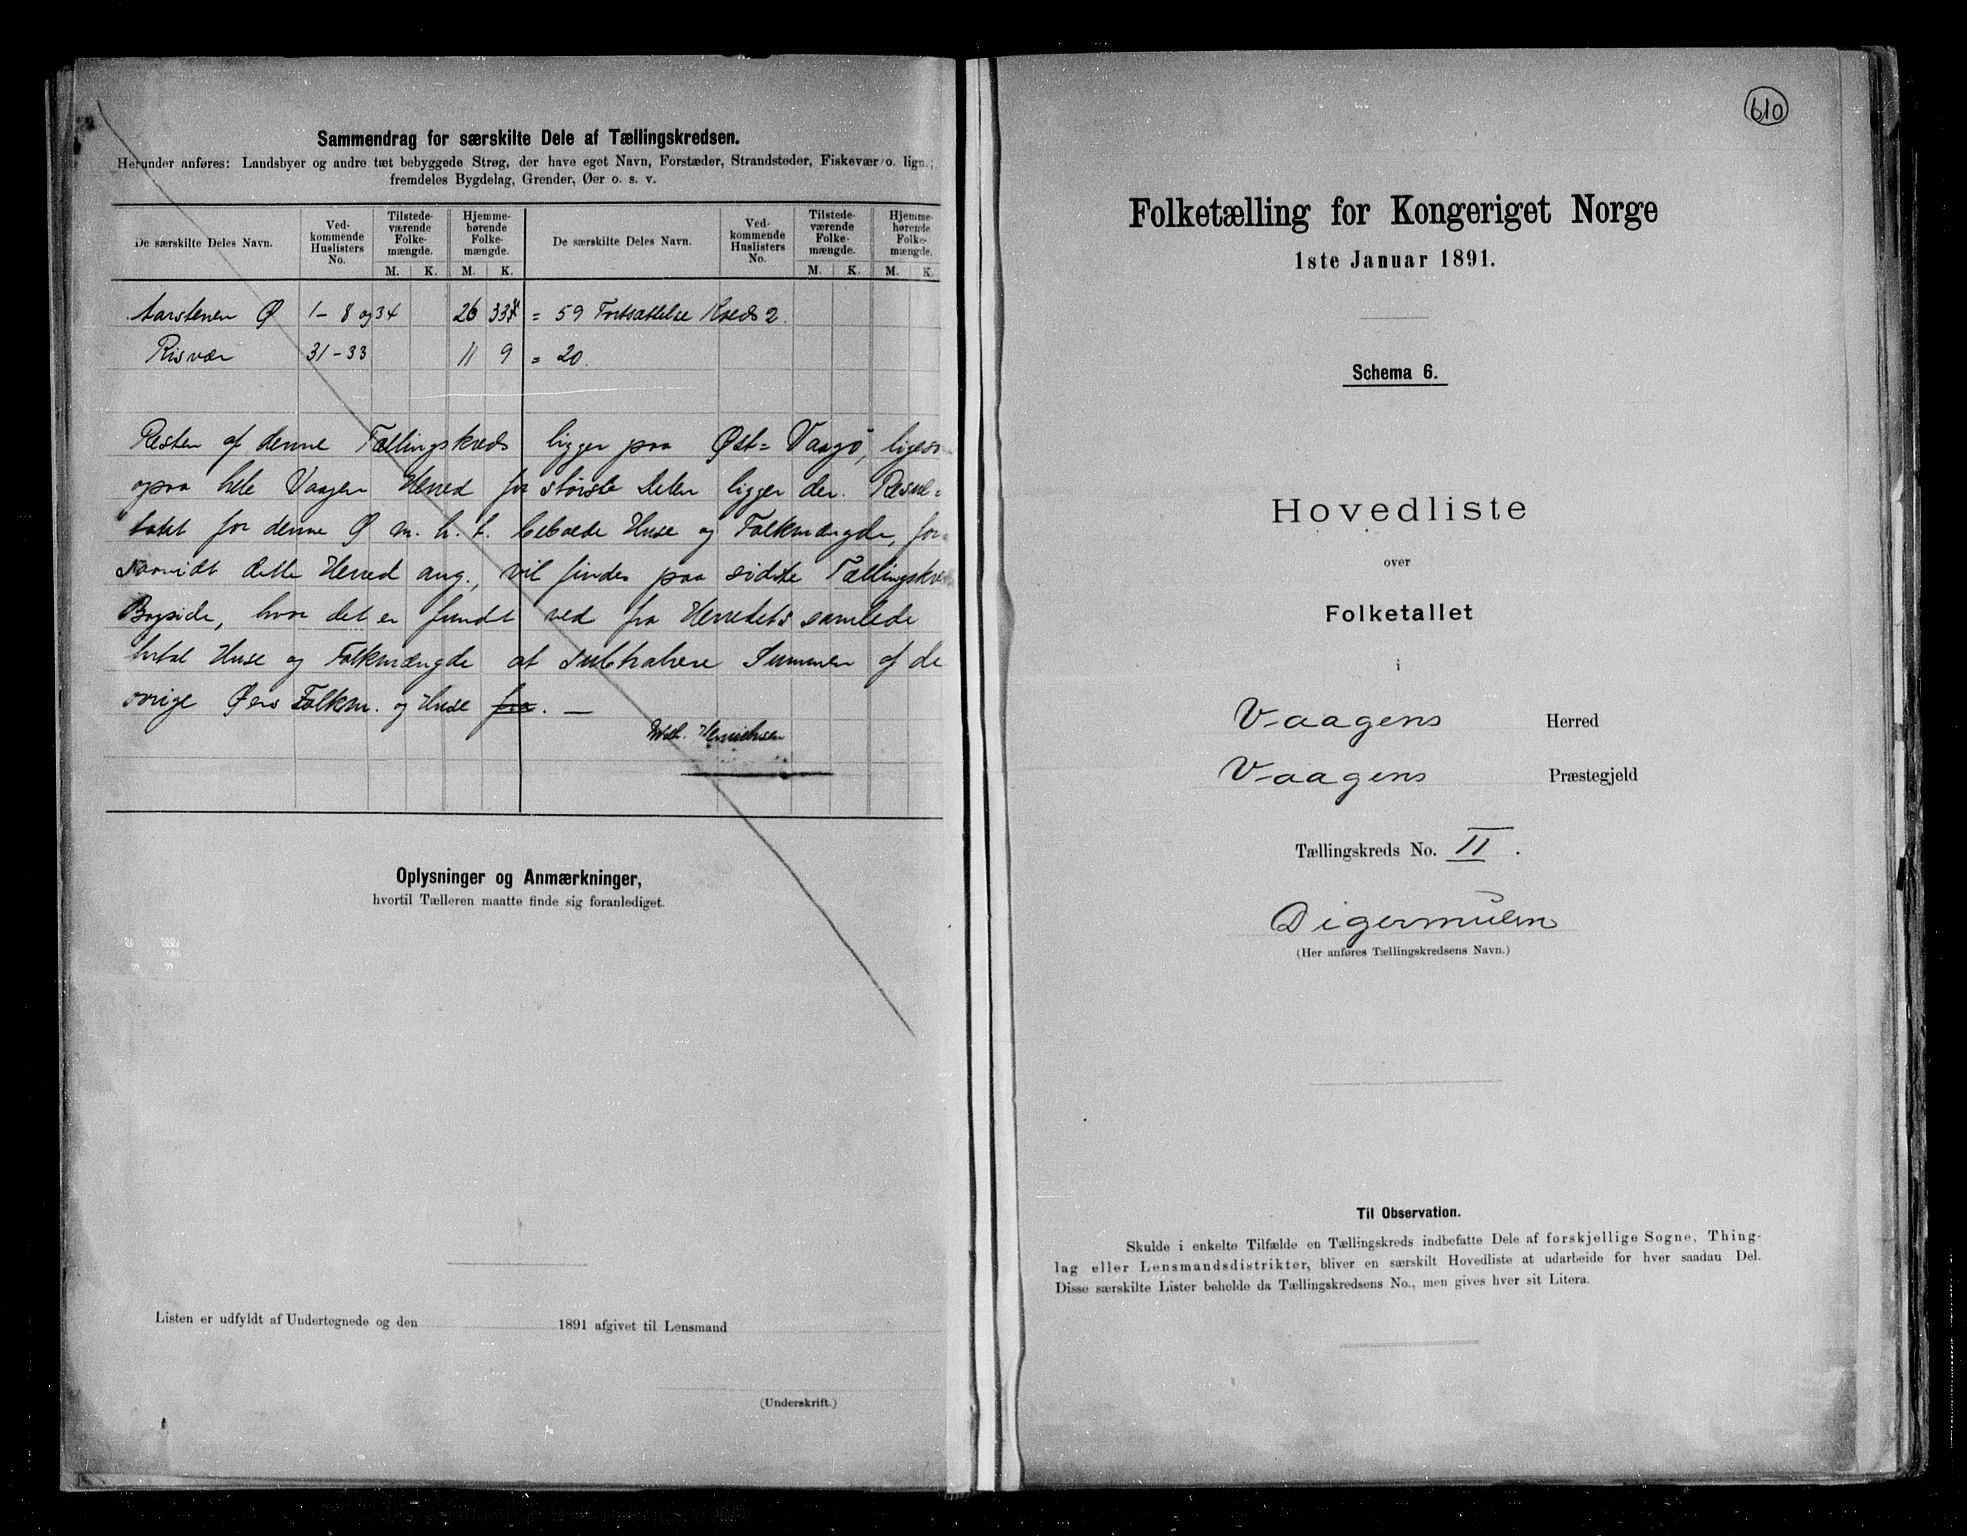 Sammendrag for særskilte Dele af Tællingskredsen.
Herunder anføres: Landsbyer og andre tæt bebyggede Strøg, der have eget Navn, Forstæder, Strandsteder, Fiskevær o. lign.;
fremdeles Bygdelag, Grender, Øer o. s. v.
De særskilte Deles Navn. Ved-kommende Huslisters No. Tilstede-værende Folke-mængde. Hjemme-hørende Folke-mængde. De særskilte Deles Navn. Ved-kommende Huslisters No. Tilstede-værende Folke-mængde. Hjemme-hørende Folke-mængde.
M. K. M. K. M. K. M. K.
Aarstenen Ø 1-8 og 34 26 33 = 59 Fortsættelse Kreds 2.
Risvær 31-33 11 9 = 20.
Resten af denne Tællingskreds ligger paa Øst-Vaagø,
opaa hele Vaagen Herred for største Delen ligger der. Resul-
tatet for denne Ø m. h. t. beboede Huse og Folkmængde,
saavidt dette Herred ang., vil findes paa sidste
Bagside, hvor det er fundt ved fra Herredets samlede
Antal Huse og Folkmængde at subtrahere Summen af de
øvrige Øers Folkm. og Huse fra. —
Wilh. Henrichsen
Oplysninger og Anmærkninger,
hvortil Tælleren maatte finde sig foranlediget.
Listen er udfyldt af Undertegnede og den 1891 afgivet til Lensmand
(Underskrift.)
610
Folketælling for Kongeriget Norge
1ste Januar 1891.
Schema 6.
Hovedliste
over
Folketallet
i
Vaagens Herred
Vaagens Præstegjeld
Tællingskreds No. II.
Digermulen
(Her anføres Tællingskredsens Navn.)
Til Observation.
Skulde i enkelte Tilfælde en Tællingskreds indbefatte Dele af forskjellige Sogne, Thing-
lag eller Lensmandsdistrikter, bliver en særskilt Hovedliste at udarbeide for hver saadan Del.
Disse særskilte Lister beholde da Tællingskredsens No., men gives hver sit Litera.